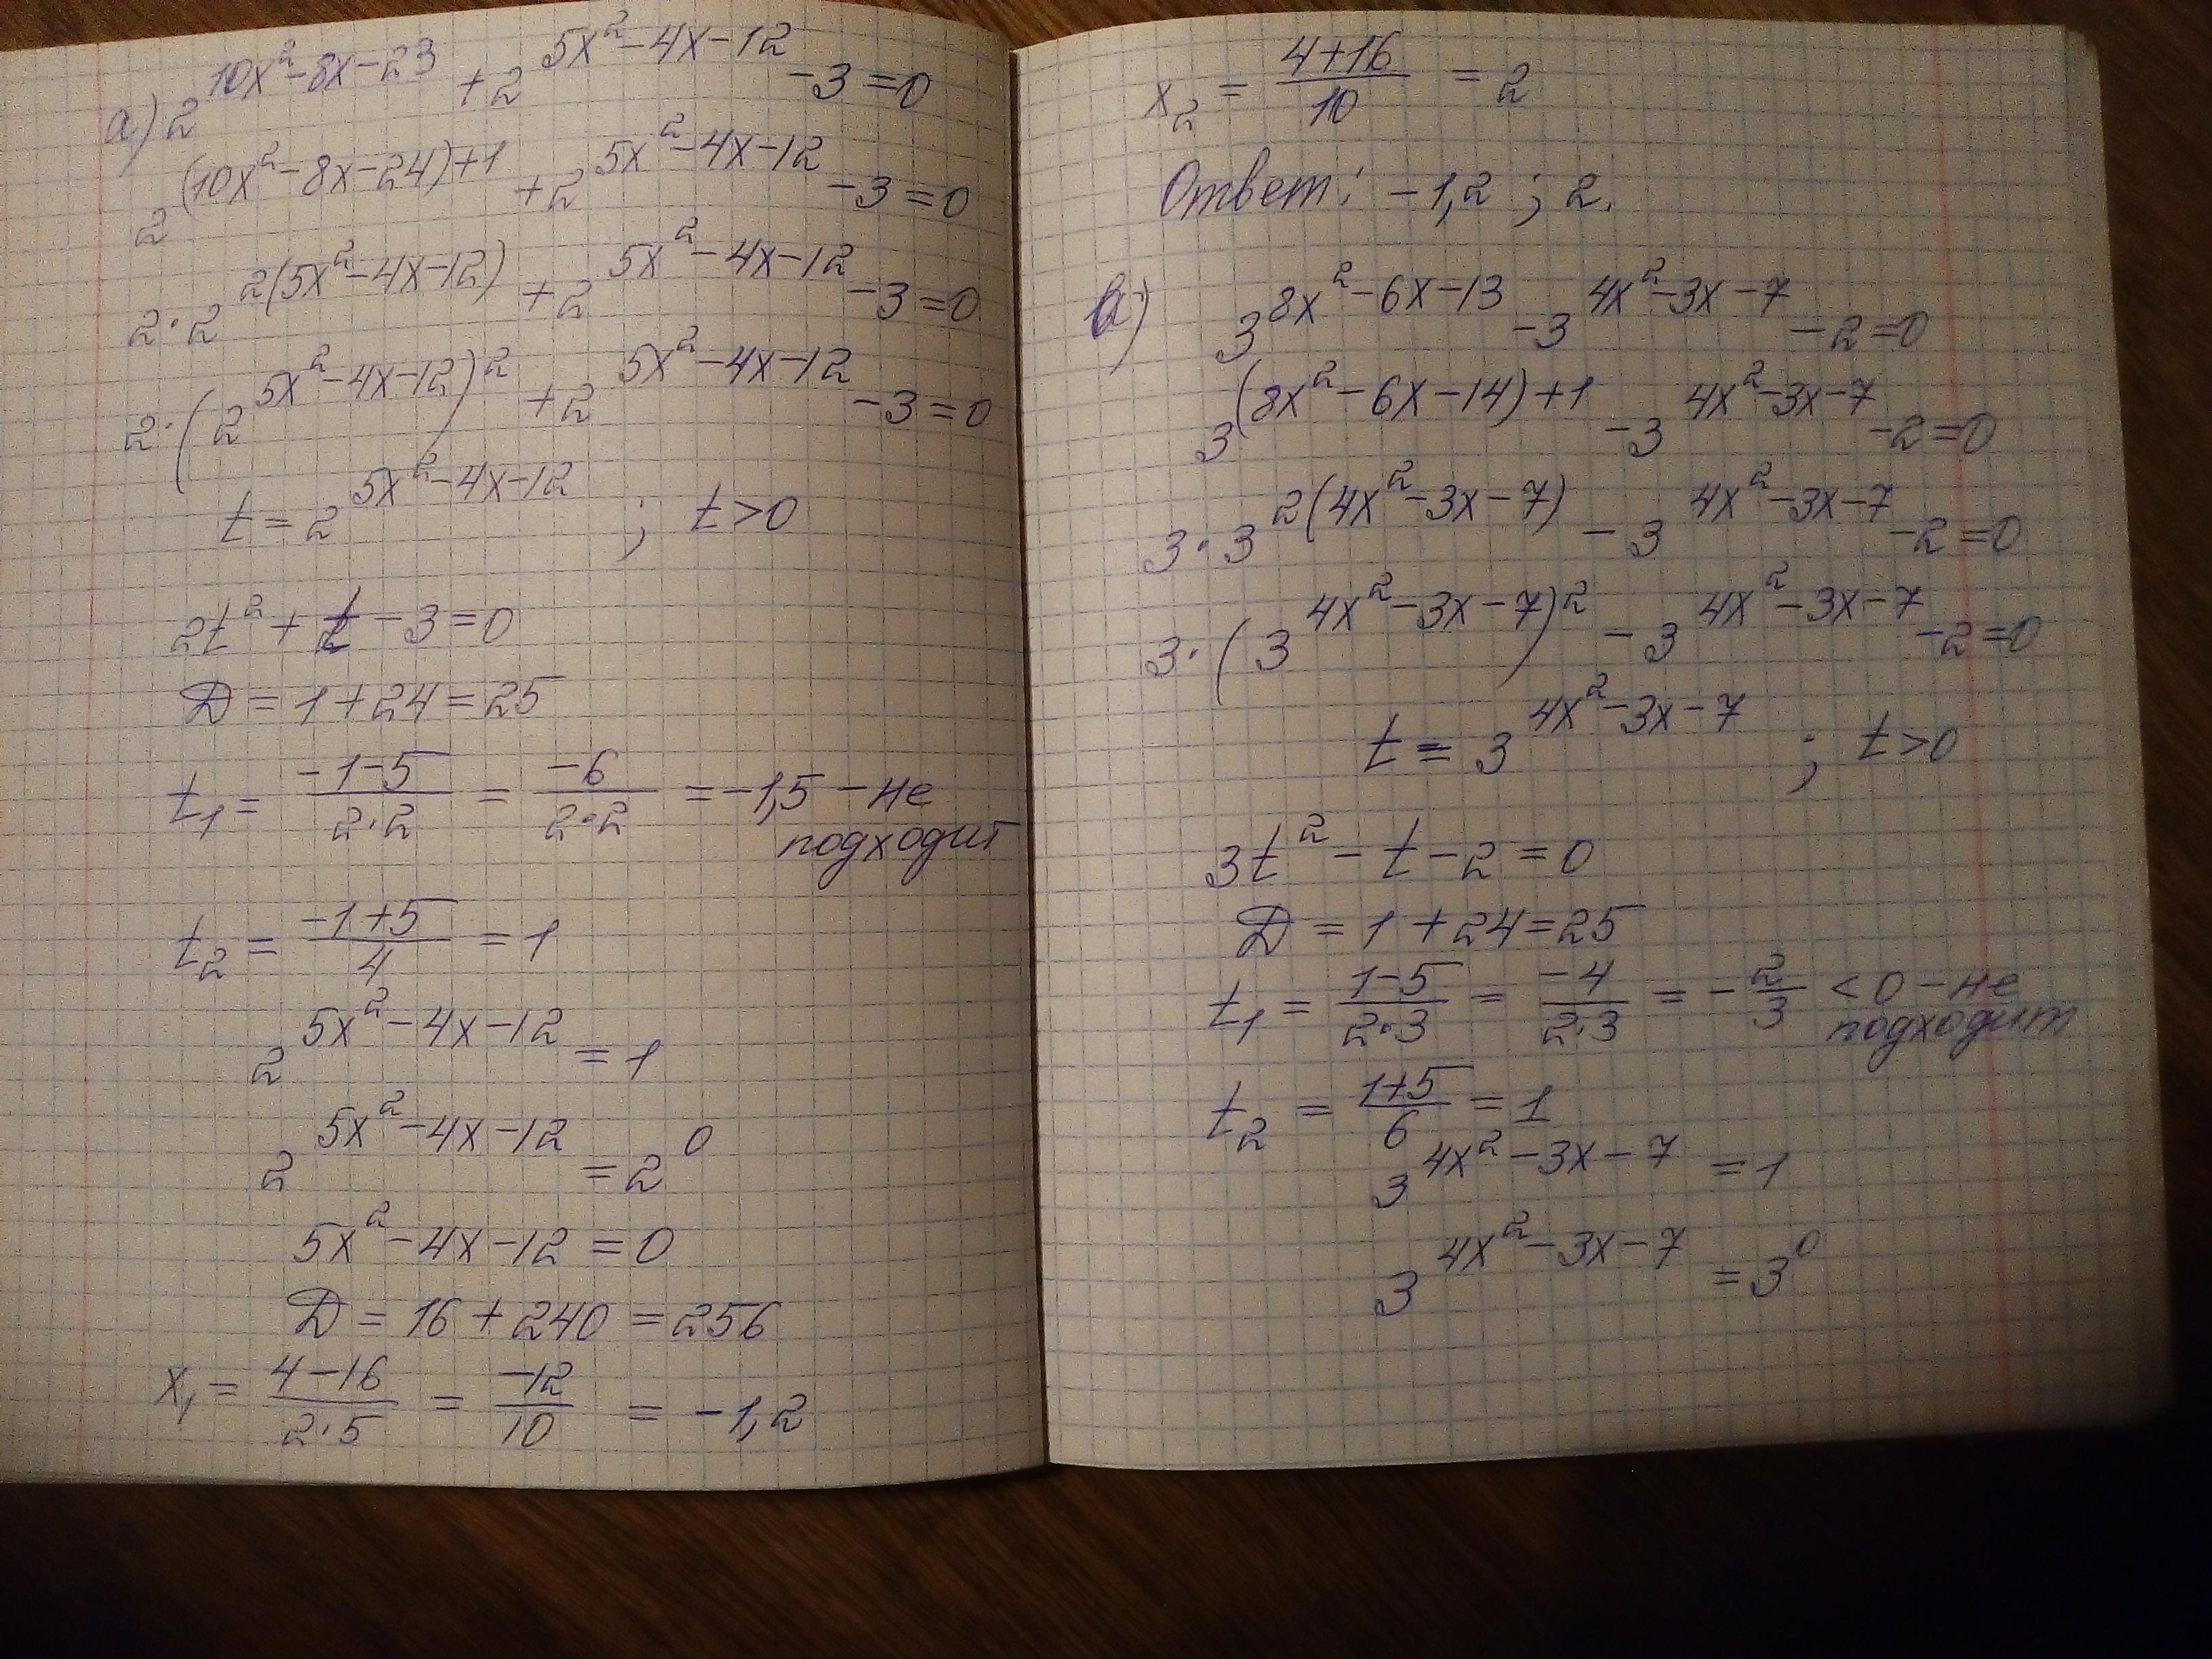 а) 2^(10x²-8x-23) + 2^(5x²-4x-12) - 3 = 0
2^((10x²-8x-24)+1) + 2^(5x²-4x-12) - 3 = 0
2·2^(2(5x²-4x-12)) + 2^(5x²-4x-12) - 3 = 0
2·(2^(5x²-4x-12))² + 2^(5x²-4x-12) - 3 = 0
t = 2^(5x²-4x-12) ; t>0
2t² + t - 3 = 0
D = 1 + 24 = 25
t₁ = (-1-5)/(2·2) = -6/(2·2) = -1,5 - не
подходит
t₂ = (-1+5)/4 = 1
2^(5x²-4x-12) = 1
2^(5x²-4x-12) = 2⁰
5x² - 4x - 12 = 0
D = 16 + 240 = 256
x₁ = (4-16)/(2·5) = -12/10 = -1,2
x₂ = (4+16)/10 = 2
Ответ: -1,2 ; 2.
в) 3^(8x²-6x-13) - 3^(4x²-3x-7) - 2 = 0
3^((8x²-6x-14)+1) - 3^(4x²-3x-7) - 2 = 0
3·3^(2(4x²-3x-7)) - 3^(4x²-3x-7) - 2 = 0
3·(3^(4x²-3x-7))² - 3^(4x²-3x-7) - 2 = 0
t = 3^(4x²-3x-7) ; t>0
3t² - t - 2 = 0
D = 1 + 24 = 25
t₁ = (1-5)/(2·3) = -4/(2·3) = -2/3 < 0 - не
подходит
t₂ = (1+5)/6 = 1
3^(4x²-3x-7) = 1
3^(4x²-3x-7) = 3⁰